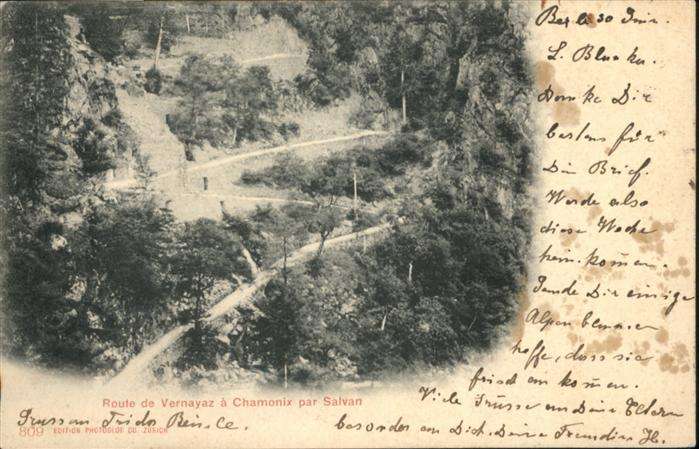 30 Juni
L. Blanka.
Danke Dir
bestens für
Dein Brief.
Werde also
diese Woche
heim kom̄en.
Sende Dir einige
Alpenblumen
hoffe, dass sie
frisch an kom̄en.
Viele Grüsse an Deine Eltern
besonders an Dich. Deine Freundin
Route de Vernayaz à Chamonix par Salvan
809 EDITION PHOTOGLOB CO. ZÜRICH
Gruss an